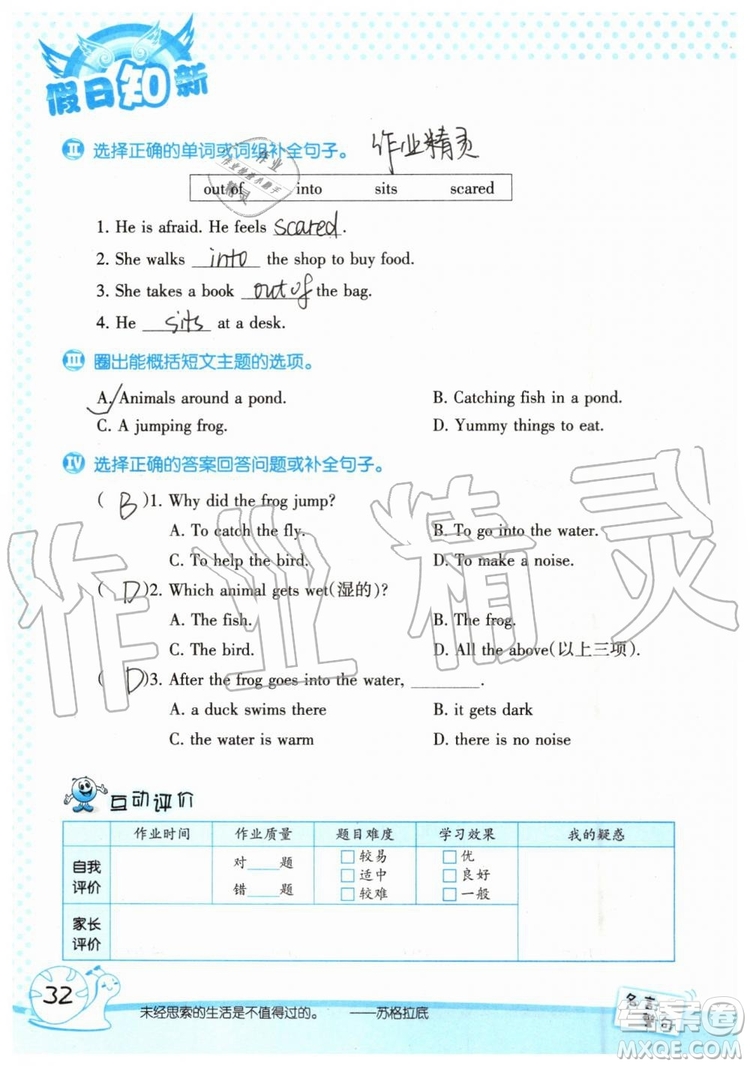 假日知新
II 选择正确的单词或词组补全句子。 作业精灵
out of into sits scared
1. He is afraid. He feels scared.
2. She walks into the shop to buy food.
3. She takes a book out of the bag.
4. He sits at a desk.
III 圈出能概括短文主题的选项。
A. Animals around a pond. B. Catching fish in a pond.
C. A jumping frog. D. Yummy things to eat.
IV 选择正确的答案回答问题或补全句子。
( B )1. Why did the frog jump?
A. To catch the fly. B. To go into the water.
C. To help the bird. D. To make a noise.
( D )2. Which animal gets wet(湿的)?
A. The fish. B. The frog.
C. The bird. D. All the above(以上三项).
( D )3. After the frog goes into the water, ______.
A. a duck swims there B. it gets dark
C. the water is warm D. there is no noise
作业精灵
互动评价
作业时间 作业质量 题目难度 学习效果 我的疑惑
自我评价 对____题 错____题 □较易 □适中 □较难 □优 □良好 □一般
家长评价
32
未经思索的生活是不值得过的。 ——苏格拉底
名言警句
答案圈
MXQE.COM